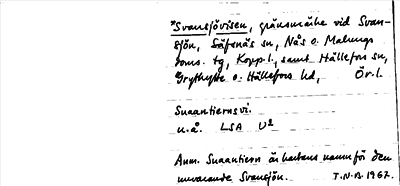 *Svansjövisen, gränsmärke vid Svan-
sjön, Säfsnäs sn, Nås o. Malungs
doms. tg, Kopp.l., samt Hällefors sn,
Grythytte o. Hällefors bd, Ör.l.
Suaantiernsvi.
u.å. LSA U2
Anm. Suaantiern är bäckens namn för den
nuvarande Svansjön. T.N.B. 1967.